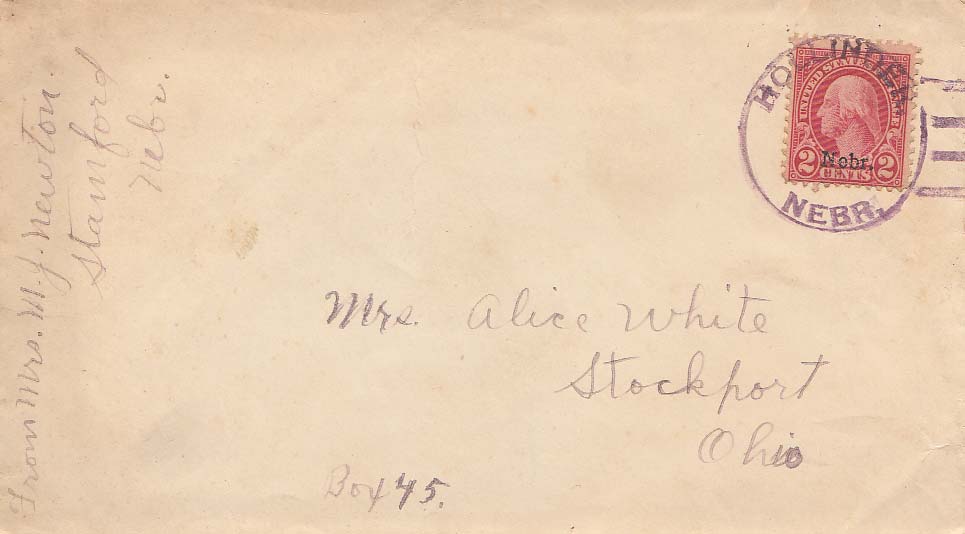 From Mrs. M. J. Newton.
Stamford
Nebr.
HOLLINGER
NEBR.
UNITED STATES POSTAGE
Nebr.
2 CENTS 2
Mrs. Alice White
Stockport
Ohio
Box 45.